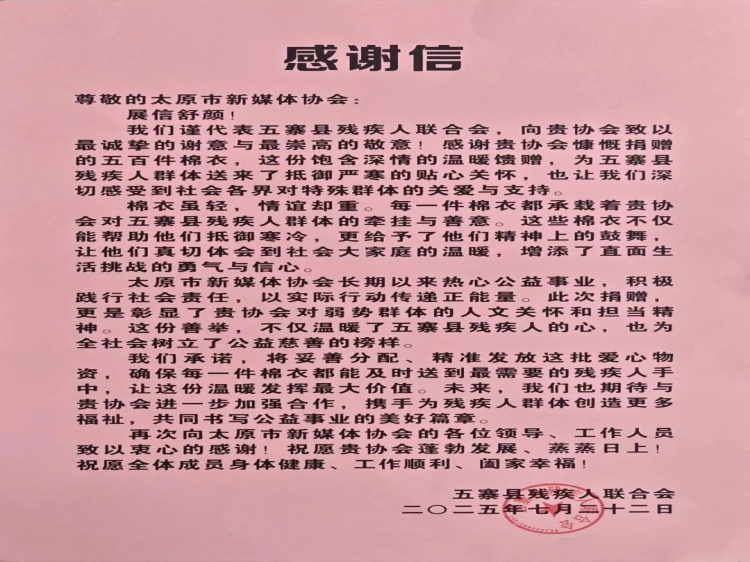 感谢信
尊敬的太原市新媒体协会：
展信舒颜！
我们谨代表五寨县残疾人联合会，向贵协会致以
最诚挚的谢意与最崇高的敬意！感谢贵协会慷慨捐赠
的五百件棉衣，这份饱含深情的温暖馈赠，为五寨县
残疾人群体送来了抵御严寒的贴心关怀，也让我们深
切感受到社会各界对特殊群体的关爱与支持。
棉衣虽轻，情谊却重。每一件棉衣都承载着贵协
会对五寨县残疾人群体的牵挂与善意。这些棉衣不仅
能帮助他们抵御寒冷，更给予了他们精神上的鼓舞，
让他们真切体会到社会大家庭的温暖，增添了直面生
活挑战的勇气与信心。
太原市新媒体协会长期以来热心公益事业，积极
践行社会责任，以实际行动传递正能量。此次捐赠，
更是彰显了贵协会对弱势群体的人文关怀和担当精
神。这份善举，不仅温暖了五寨县残疾人的心，也为
全社会树立了公益慈善的榜样。
我们承诺，将妥善分配、精准发放这批爱心物
资，确保每一件棉衣都能及时送到最需要的残疾人手
中，让这份温暖发挥最大价值。未来，我们也期待与
贵协会进一步加强合作，携手为残疾人群体创造更多
福祉，共同书写公益事业的美好篇章。
再次向太原市新媒体协会的各位领导、工作人员
致以衷心的感谢！祝愿贵协会蓬勃发展、蒸蒸日上！
祝愿全体成员身体健康、工作顺利、阖家幸福！
五寨县残疾人联合会
二〇二五年七月二十二日